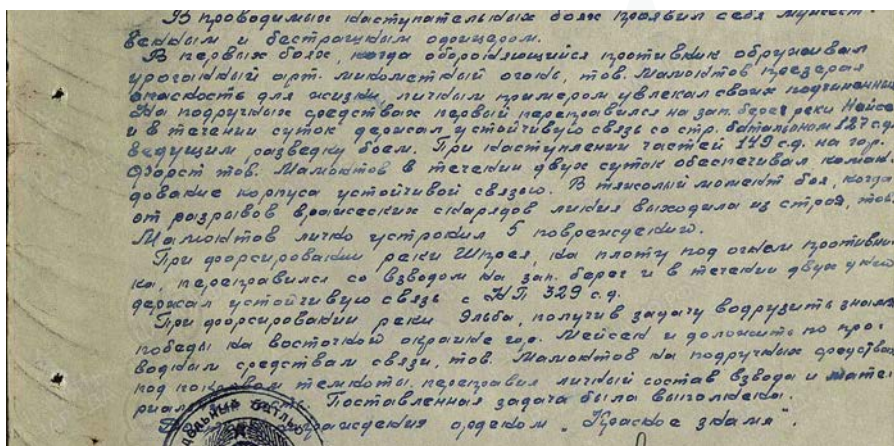 В проводимых наступательных боях проявил себя мужест-
венным и бесстрашным офицером.
В первых боях, когда обороняющийся противник обрушивал
ураганный арт. минометный огонь, тов. Мамонтов презерая
опасность для жизни, личным примером увлекал своих подчиненных
На подручных средствах первый переправился на зап. берег реки Нейсе
и в течении суток держал устойчивую связь со стр. батальоном 127 с.д.
ведущим разведку боем. При наступлении частей 149 с.д. на гор.
Форст тов. Мамонтов в течении двух суток обеспечивал коман-
дование корпуса устойчивой связью. В тяжолый момент боя, когда
от разрывов вражеских снарядов линия выходила из строя, тов.
Мамонтов лично устронил 5 повреждений.
При форсировании реки Шпрея, на плоту под огнем противни-
ка, переправился со взводом на зап. берег и в течении двух дней
держал устойчивую связь с НП 329 с.д.
При форсировании реки Эльба, получив задачу водрузить знамя
победы на восточной окраине гор. Мейсен и доложить по про-
водным средствам связи, тов. Мамонтов на подручных средствах
под покровом темноты переправил личный состав взвода и мате-
риальную часть. Поставленная задача была выполнена.
награждения орденом „Красное знамя".